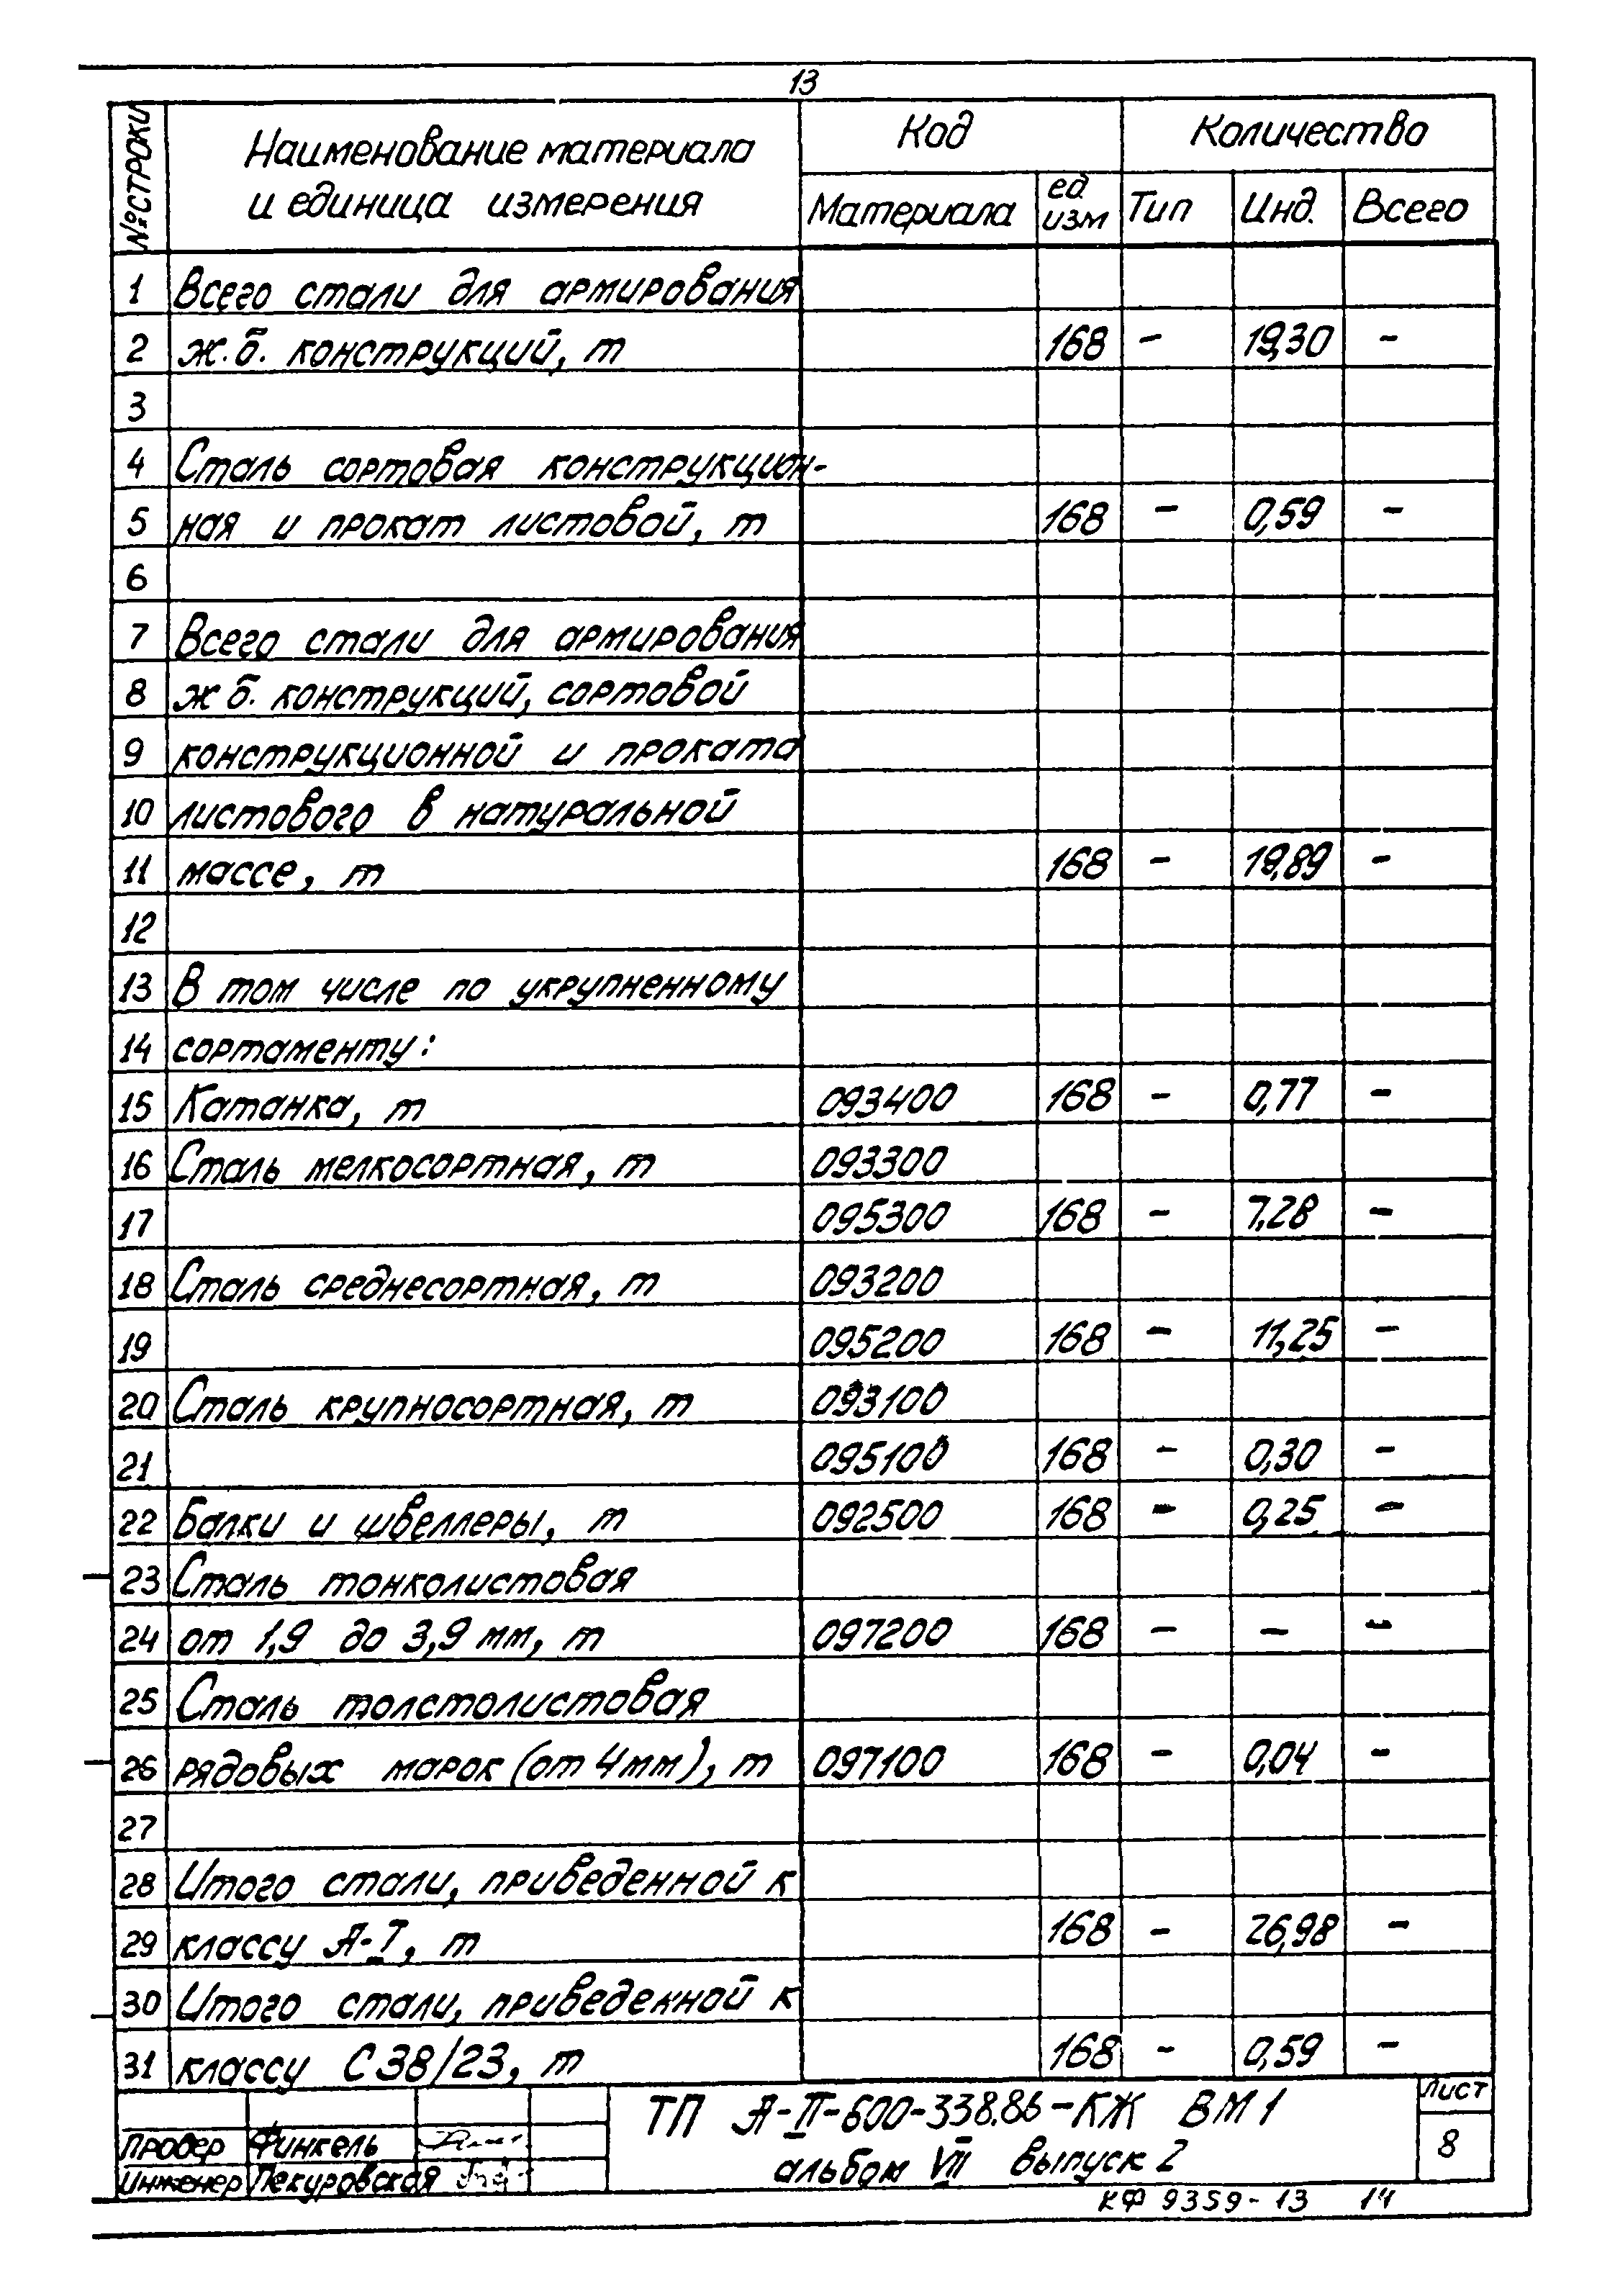 13
№ строки | Наименование материала и единица измерения | Код | Количество
Материала | ед изм | Тип | Инд. | Всего
1 Всего стали для армирования
2 ж.б. конструкций, т 168 - 19,30 -
3
4 Сталь сортовая конструкцион-
5 ная и прокат листовой, т 168 - 0,59 -
6
7 Всего стали для армирования
8 ж б. конструкций, сортовой
9 конструкционной и проката
10 листового в натуральной
11 массе, т 168 - 19,89 -
12
13 В том числе по укрупненному
14 сортаменту:
15 Катанка, т 093400 168 - 0,77 -
16 Сталь мелкосортная, т 093300
17 095300 168 - 7,28 -
18 Сталь среднесортная, т 093200
19 095200 168 - 11,25 -
20 Сталь крупносортная, т 093100
21 095100 168 - 0,30 -
22 Балки и швеллеры, т 092500 168 - 0,25 -
23 Сталь тонколистовая
24 от 1,9 до 3,9 мм, т 097200 168 - - -
25 Сталь толстолистовая
26 рядовых марок (от 4 мм), т 097100 168 - 0,04 -
27
28 Итого стали, приведенной к
29 классу А-I, т 168 - 26,98 -
30 Итого стали, приведенной к
31 классу С 38/23, т 168 - 0,59 -
ТП А-II-600-338.86-КЖ ВМ 1
альбом VII выпуск 2
Лист
8
Провер Финкель
Инженер Пекуровская
КФ 9359-13 14